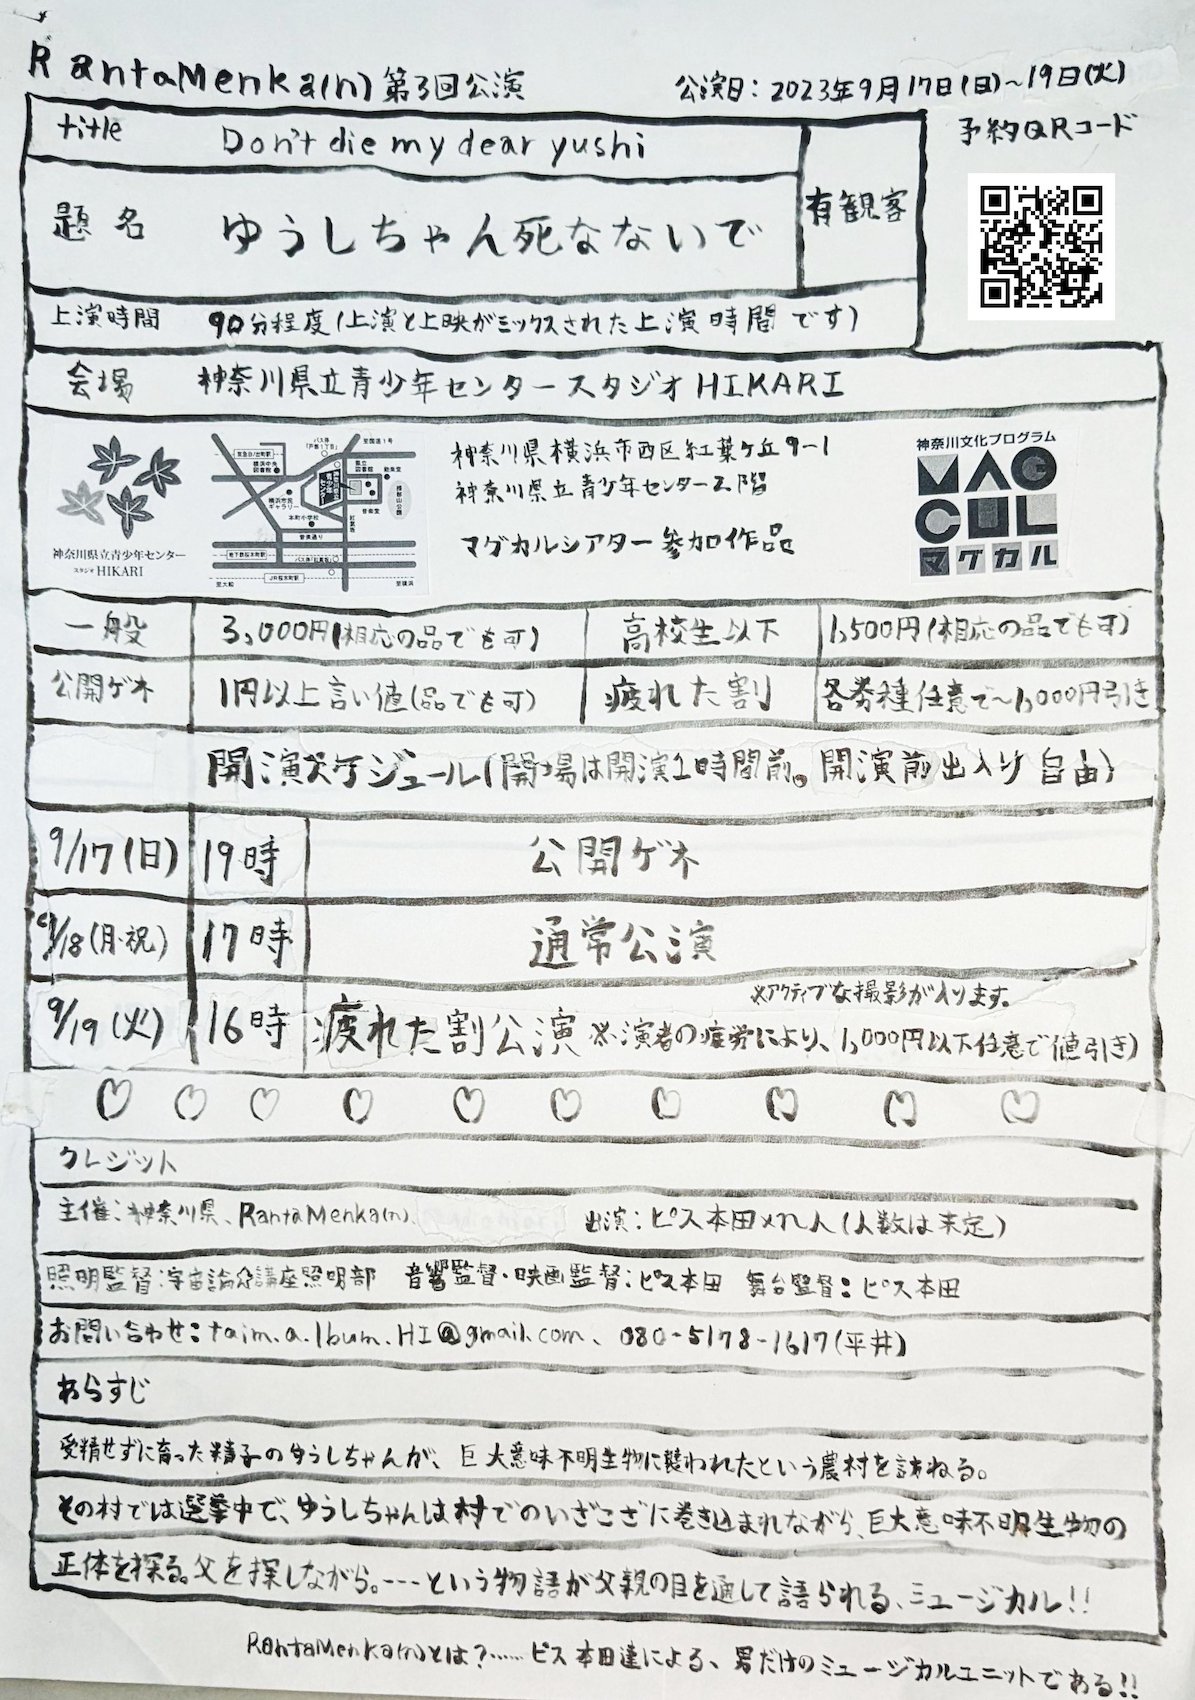 RantaMenka(n) 第3回公演
公演日：2023年9月17日(日)～19日(火)
予約QRコード
title Don't die my dear yushi
有観客
題名 ゆうしちゃん死なないで
上演時間 90分程度(上演と上映がミックスされた上演時間です)
会場 神奈川県立青少年センタースタジオHIKARI
神奈川県立青少年センター
スタジオHIKARI
バス停
「戸部1丁目」
至国道1号
京急日ノ出町駅
横浜中央
図書館
県立
図書館
能楽堂
掃部山
公園
横浜市民
ギャラリー
本町小学校
音楽堂
紅葉坂
音楽通り
地下鉄桜木町駅
バス停「紅葉坂」
JR桜木町駅
至大船
至横浜
神奈川県横浜市西区紅葉ヶ丘9-1
神奈川県立青少年センター2階
マグカルシアター参加作品
神奈川文化プログラム
MAG
CUL
マグカル
一般 3,000円(相応の品でも可) 高校生以下 1,500円(相応の品でも可)
公開ゲネ 1円以上言い値(品でも可) 疲れた割 各券種任意で～1,000円引き
開演スケジュール(開場は開演1時間前。開演前出入り自由)
9/17(日) 19時 公開ゲネ
9/18(月・祝) 17時 通常公演
※アクティブな撮影が入ります。
9/19(火) 16時 疲れた割公演 ※演者の疲労により、1,000円以下任意で値引き)
クレジット
主催：神奈川県、RantaMenka(n) 出演：ピス本田×n人(人数は未定)
照明監督：宇宙論☆講座照明部 音響監督・映画監督：ピス本田 舞台監督：ピス本田
お問い合わせ：taim.a.lbum.HI@gmail.com、080-5178-1617(平井)
あらすじ
受精せずに育った精子のゆうしちゃんが、巨大意味不明生物に襲われたという農村を訪ねる。
その村では選挙中で、ゆうしちゃんは村でのいざこざに巻き込まれながら、巨大意味不明生物の
正体を探る。父を探しながら。---という物語が父親の目を通して語られる、ミュージカル!!
RantaMenka(n)とは？……ピス本田達による、男だけのミュージカルユニットである!!